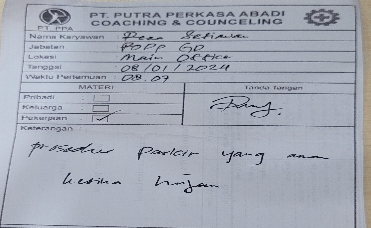 PT. PUTRA PERKASA ABADI
COACHING & COUNCELING
PT. PPA
Nama Karyawan
Jabatan
Lokasi Main Office
Tanggal 08/01/2024
Waktu Pertemuan 08.07
MATERI Tanda Tangan
Pribadi
Keluarga
Pekerjaan
Keterangan
prosedur parkir yang
ketika hujan